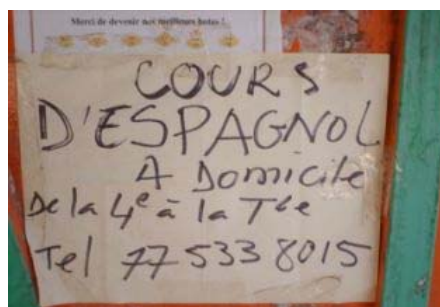 Merci de devenir nos meilleurs hotes !
COURS
D'ESPAGNOL
A Domicile
De la 4e à la Tle
Tel 77 533 8015